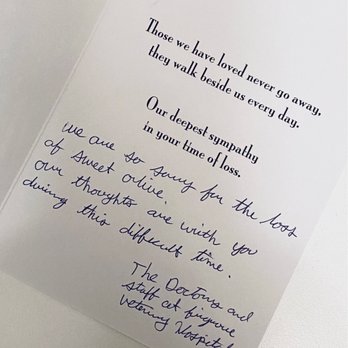 Those we have loved never go away,
they walk beside us every day.
Our deepest sympathy
in your time of loss.
We are so sorry for the loss
of sweet olive.
our thoughts are with you
during this difficult time.
The Doctors and
staff at
Veterinary Hospital